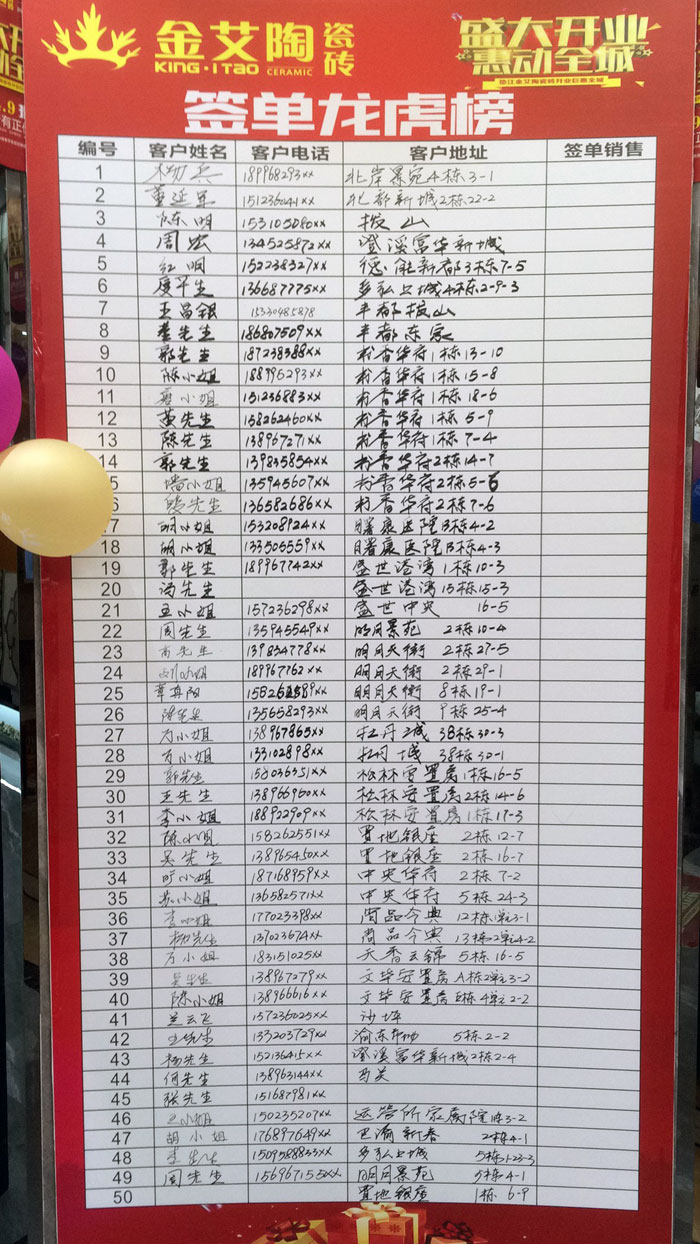 金艾陶 瓷砖
KING·ITAO CERAMIC
盛大开业
惠动全城
签单龙虎榜
编号 客户姓名 客户电话 客户地址 签单销售
1 杨兵 189968293xx 北岸景苑4栋3-1
2 董延军 151236041xx 北部新城2栋22-2
3 陈明 153105080xx 按山
4 周宏 134525872xx 澄溪富华新城
5 红明 152238327xx 德能新都3栋7-5
6 136687775xx 上城4栋2-9-3
7 王昌银 15330485878 丰都按山
8 先生 186807509xx 丰都东家
9 郭先生 187238388xx 香华府1栋13-10
10 陈小姐 188996293xx 香华府1栋15-8
11 小姐 151236883xx 香华府1栋18-6
12 黄先生 158262460xx 香华府1栋5-9
13 陈先生 138967271xx 香华府1栋7-4
14 郭先生 139835854xx 香华府2栋14-7
5 小姐 135945607xx 香华府2栋5-6
6 先生 136582686xx 香华府2栋7-6
17 胡小姐 153208924xx 曙康医院B栋4-2
18 胡小姐 133505559xx 曙康医院B栋4-3
19 郭先生 189967742xx 盛世港湾1栋10-3
20 冯先生 盛世港湾15栋15-3
21 王小姐 157236298xx 盛世中央 16-5
22 周先生 135945549xx 明月景苑 2栋10-4
23 先生 139834778xx 明月天街 2栋27-5
24 小姐 189967762xx 明月天街 2栋29-1
25 明月天街 8栋19-1
26 先生 135658293xx 明月天街 9栋25-4
27 方小姐 138967865xx 牡丹城 38栋30-3
28 方小姐 133102898xx 牡丹城 38栋30-1
29 郭先生 松林安置房1栋16-5
30 王先生 138966960xx 松林安置房2栋14-6
31 李小姐 188922909xx 松林安置房1栋17-3
32 陈小 158262551xx 置地银座 2栋12-7
33 吴先生 138965450xx 置地银座 2栋16-7
34 小姐 187168959xx 中央华府 2栋7-2
35 苏小姐 136582571xx 中央华府 5栋24-3
36 李小姐 177023398xx 尚品今典 12栋1单3-1
37 杨先生 137023674xx 尚品今典 13栋2单元4-2
38 方小姐 183151025xx 天香云锦 5栋16-5
39 先生 138967279xx 文华安置房A栋2单3-2
40 陈小姐 138966616xx 文华安置房B栋4单2-2
41 兰云飞 157236025xx 沙坪
42 133203729xx 渝东 5栋2-2
43 杨先生 152136415xx 澄溪富华新城2栋2-4
44 何先生 138963144xx
45 张先生 151687981xx
46 小姐 150235207xx 运管所家属院1栋3-2
47 胡小姐 176897649xx 巴渝新春 2栋4-1
48 李先生 1509588833xx 上城 5栋1-23-3
49 周先生 156967155xx 明月景苑 5栋4-1
50 置地银座 1栋 6-9